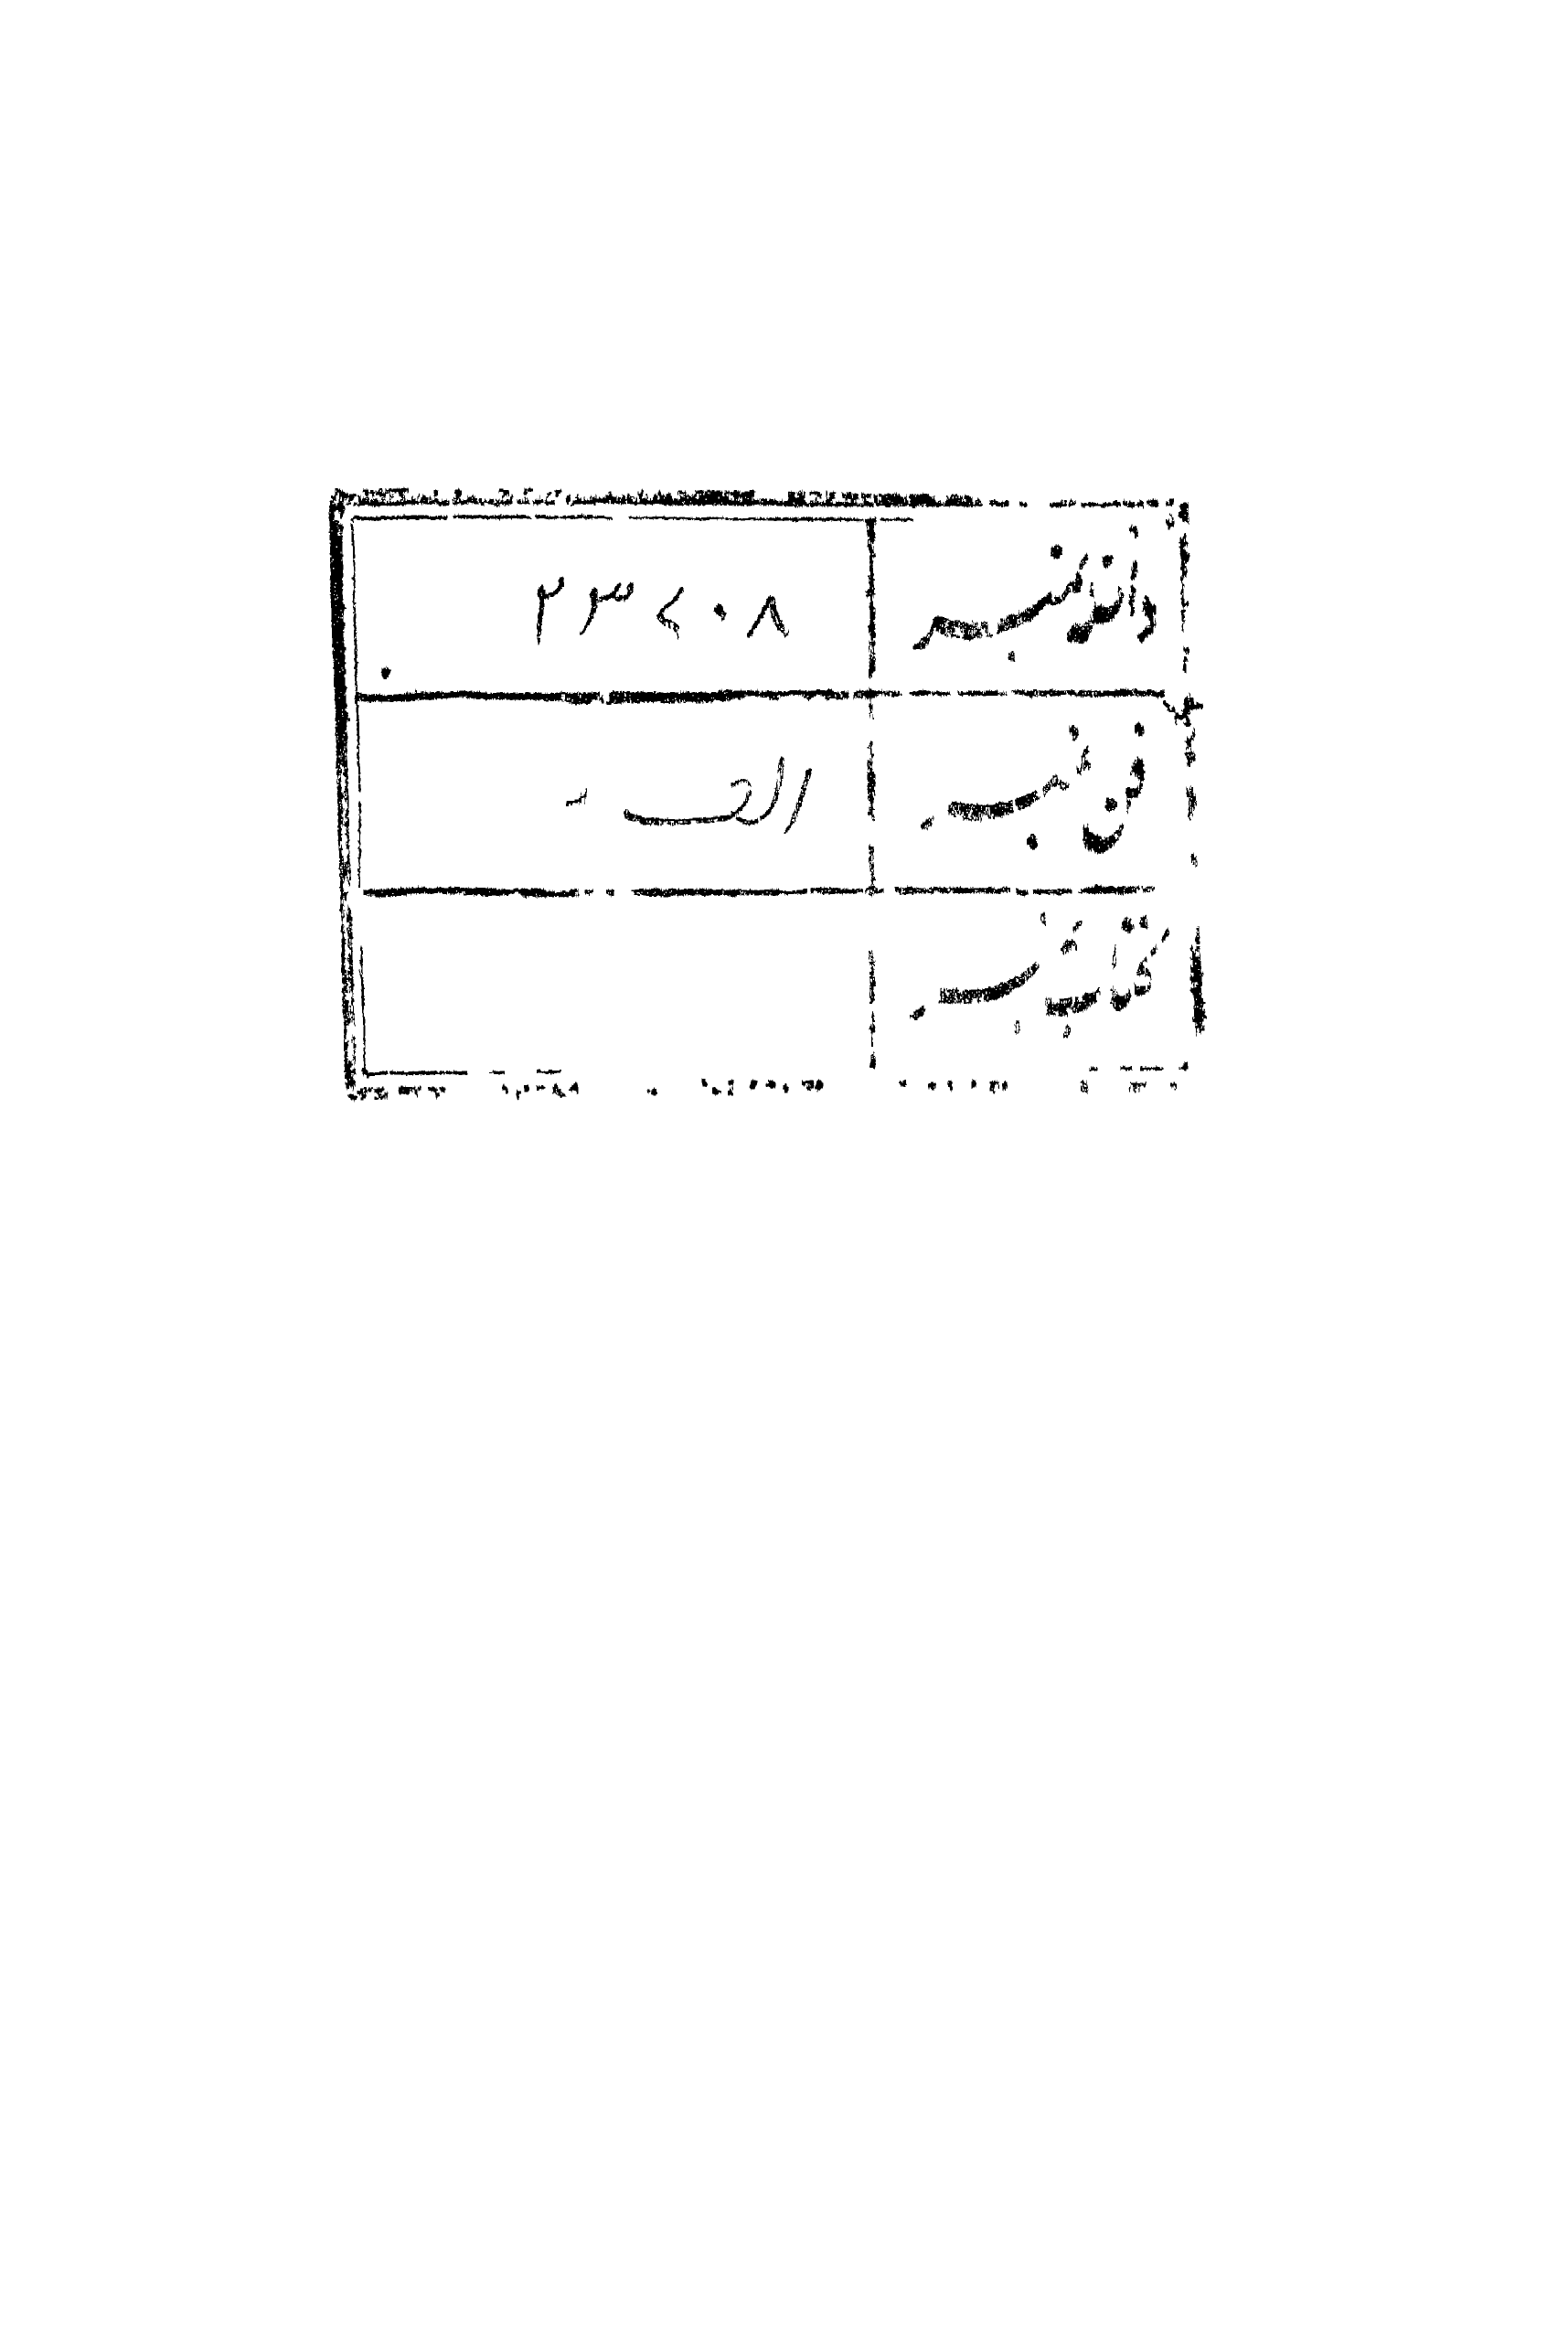 داخلہ نمبر ۲۳۷۰۸
فن نمبر الف
کتاب نمبر